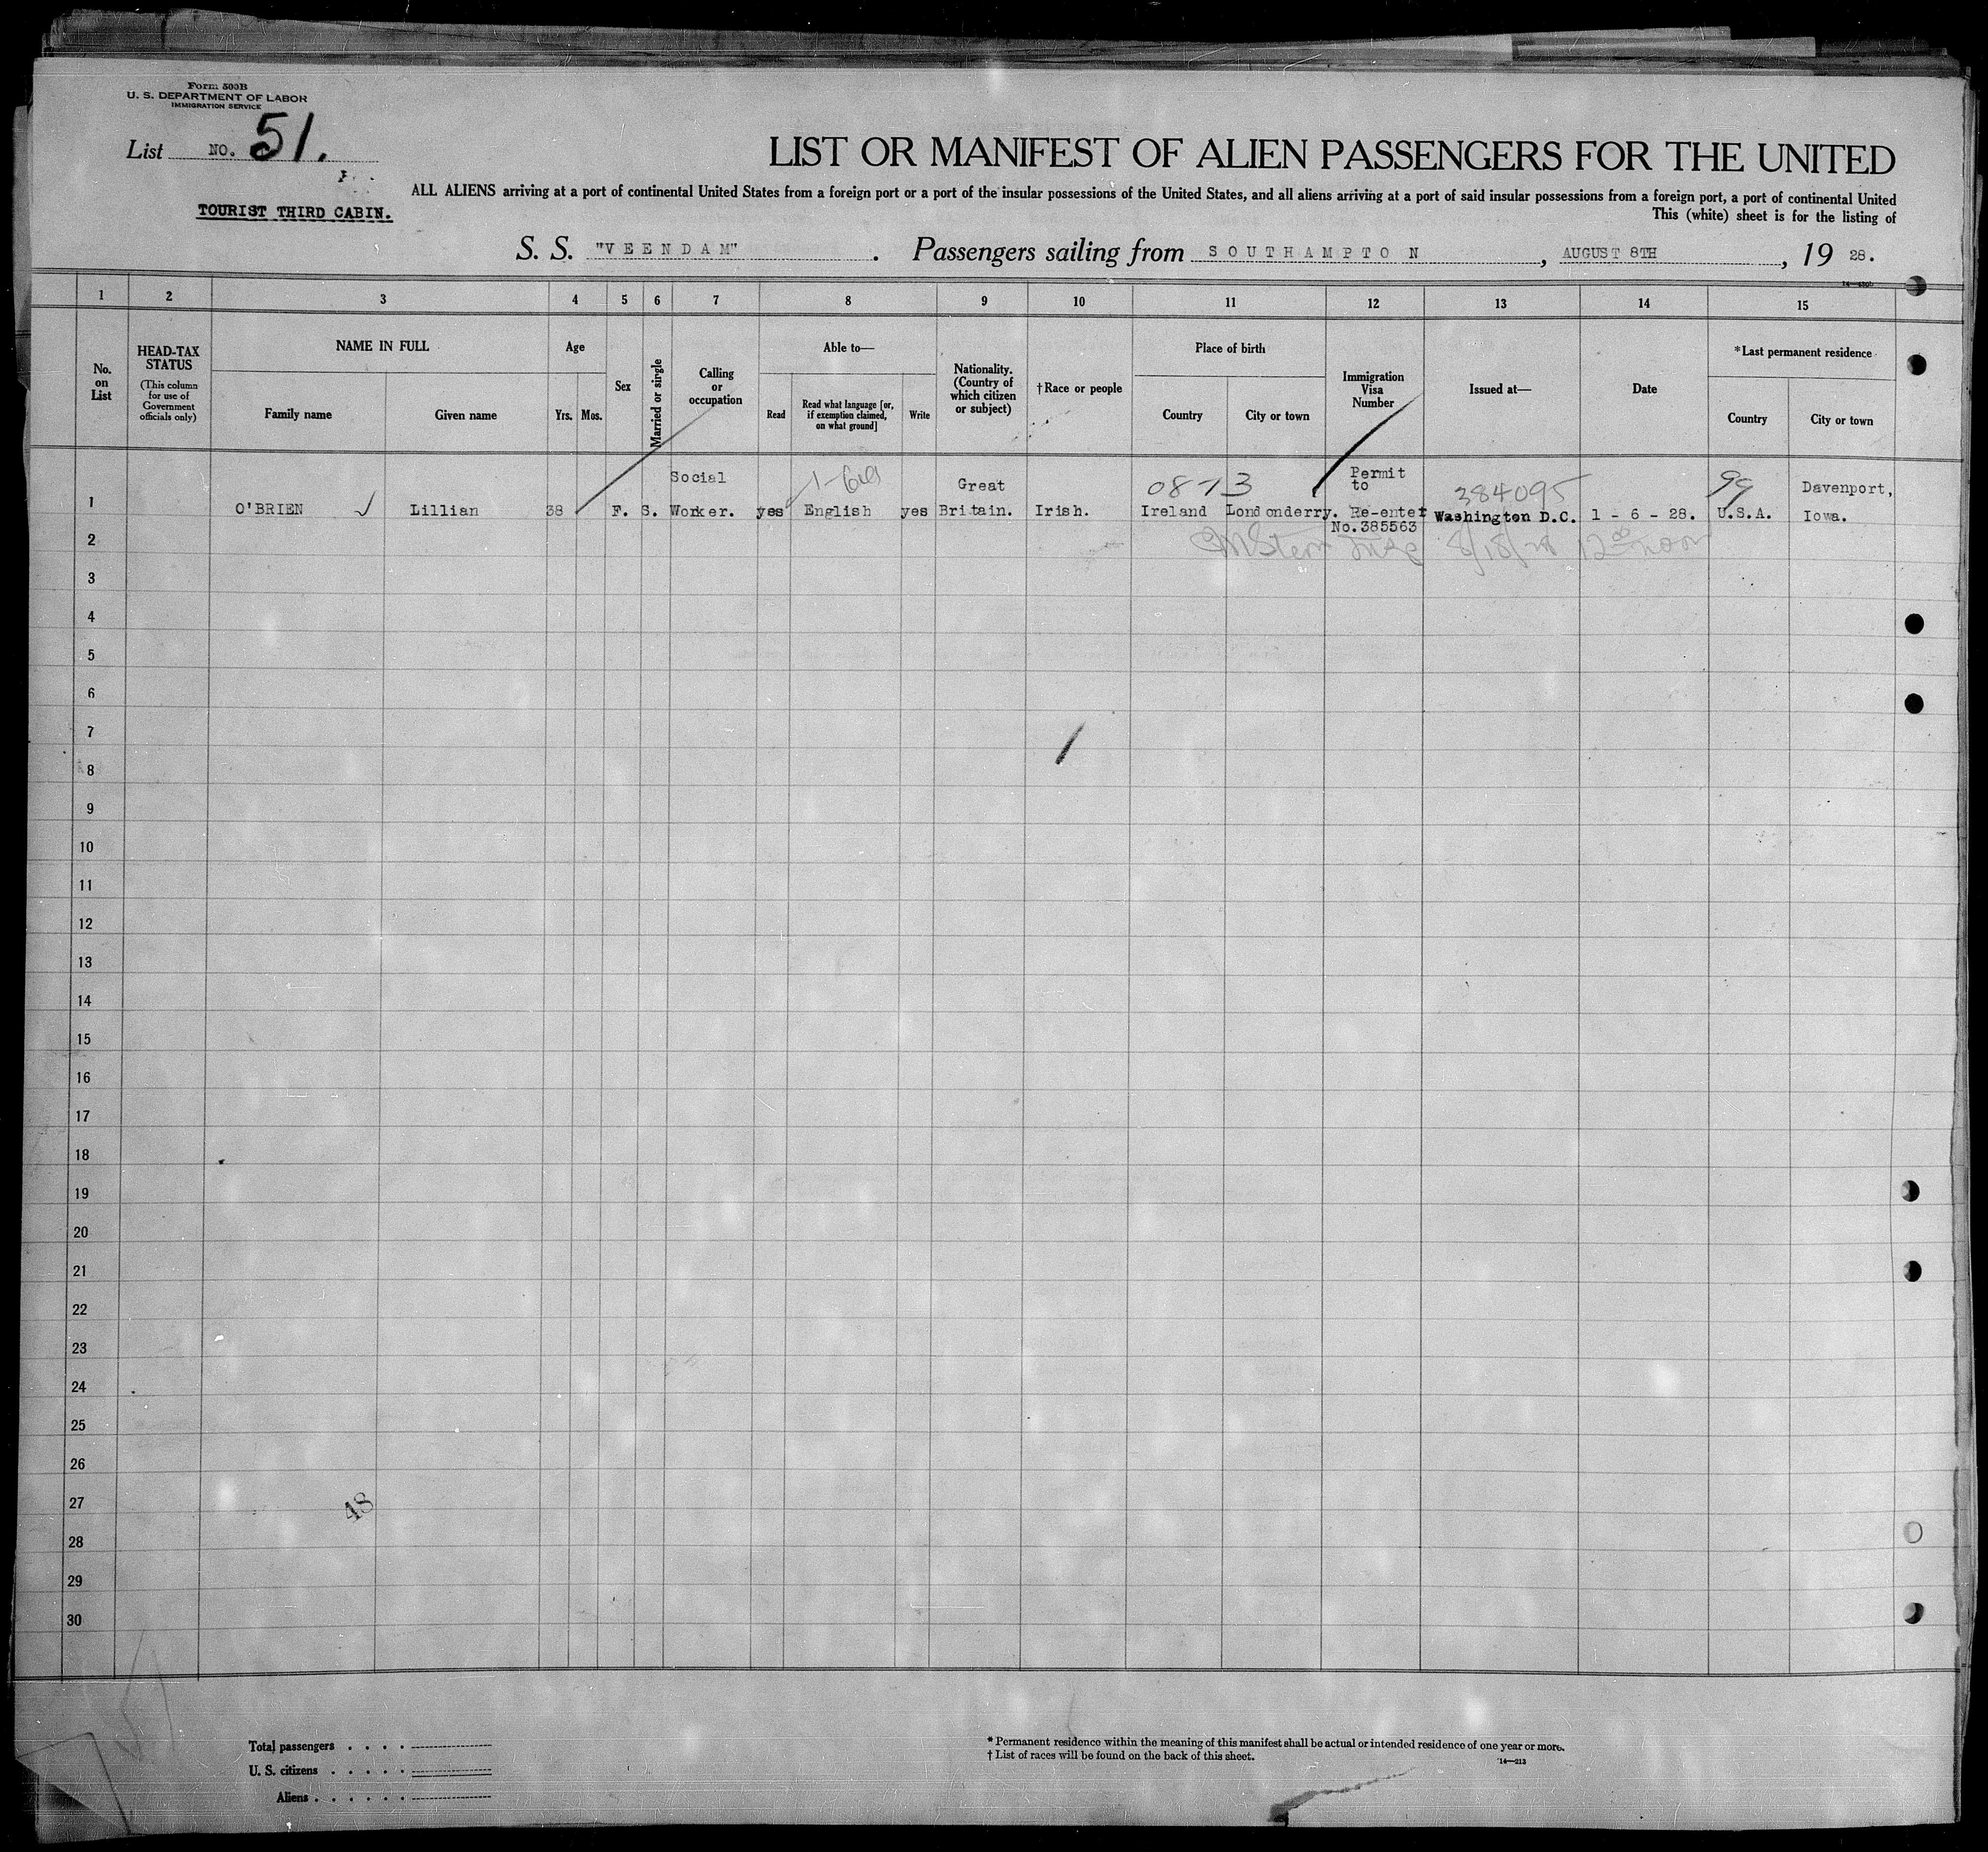 Form 500B
U. S. DEPARTMENT OF LABOR
IMMIGRATION SERVICE
List NO. 51.
LIST OR MANIFEST OF ALIEN PASSENGERS FOR THE UNITED
ALL ALIENS arriving at a port of continental United States from a foreign port or a port of the insular possessions of the United States, and all aliens arriving at a port of said insular possessions from a foreign port, a port of continental United
TOURIST THIRD CABIN.
This (white) sheet is for the listing of
S. S. "VEENDAM". Passengers sailing from SOUTHAMPTON, AUGUST 8TH, 19 28.
1 2 3 4 5 6 7 8 9 10 11 12 13 14 15
No. on List
HEAD-TAX STATUS
(This column for use of Government officials only)
NAME IN FULL
Family name Given name
Age
Yrs. Mos.
Sex
Married or single
Calling or occupation
Able to—
Read
Read what language [or, if exemption claimed, on what ground]
Write
Nationality. (Country of which citizen or subject)
†Race or people
Place of birth
Country City or town
Immigration Visa Number
Issued at—
Date
*Last permanent residence
Country City or town
0873 384095 99
1 O'BRIEN Lillian 38 F. S. Social Worker. yes English yes Great Britain. Irish. Ireland Londonderry. Permit to Re-enter No.385563 Washington D.C. 1 - 6 - 28. U.S.A. Davenport, Iowa.
2 8/18/28 12 noon
3
4
5
6
7
8
9
10
11
12
13
14
15
16
17
18
19
20
21
22
23
24
25
26
27
48
28
29
30
Total passengers . . . .
U. S. citizens . . . . .
Aliens . . . . . .
* Permanent residence within the meaning of this manifest shall be actual or intended residence of one year or more.
† List of races will be found on the back of this sheet.
14—213